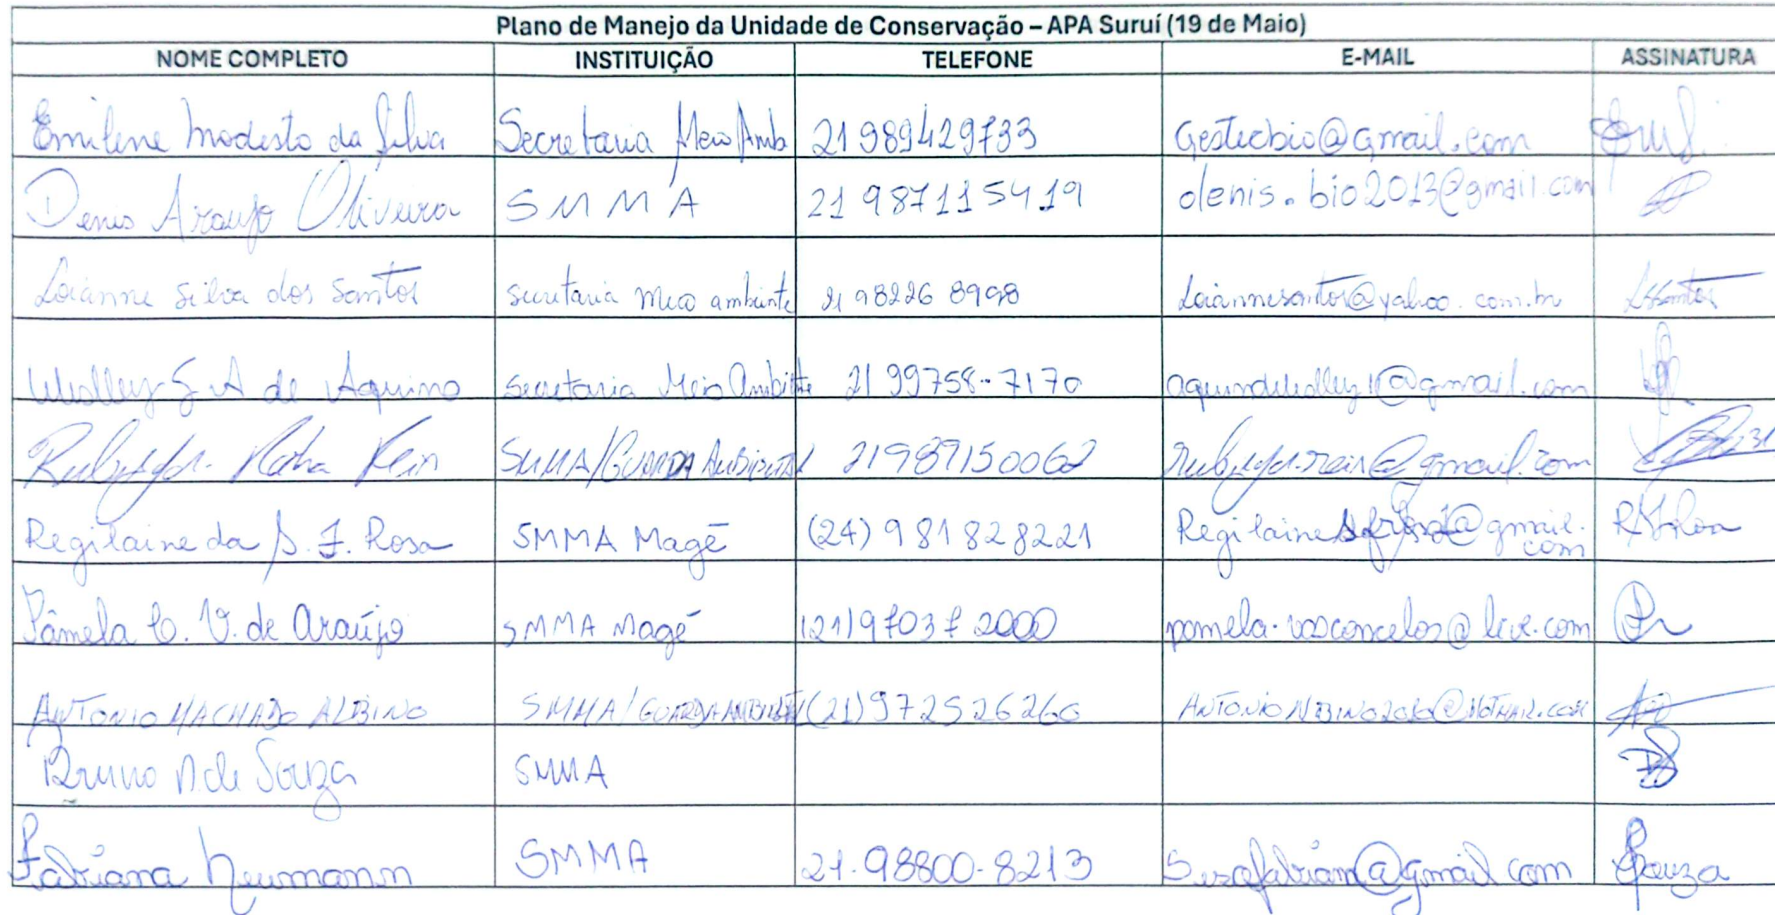 Plano de Manejo da Unidade de Conservação – APA Suruí (19 de Maio)
NOME COMPLETO INSTITUIÇÃO TELEFONE E-MAIL ASSINATURA
Emilene Modesto da Silva Secretaria Meio Amb 21 989429733 Gestecbio@gmail.com
Denis Araujo Oliveira SMMA 21 987115419 denis.bio2013@gmail.com
Loianne Silva dos Santos secretaria meio ambiente 21 98226 8998 Loiannesantos@yahoo.com.br LSSantos
Weslley S A de Aquino secretaria Meio Ambiente 21 99758-7170
Reis SMMA/GUARDA AMBIENTAL 21987150062
Regilaine da S. F. Rosa SMMA Magé (24) 981828221
Pâmela C. V. de Araújo SMMA Magé (21) 97037 2000 pamela.vasconcelos@live.com
ANTONIO MACHADO ALBINO SMMA/GUARDA AMBIENTAL (21) 972526260
Bruno N de Souza SMMA
Fabiana Neumann SMMA 21.98800-8213 Souza